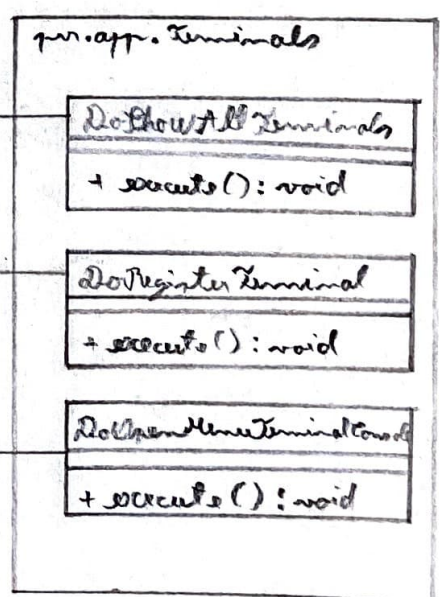 prr.app.Terminals
DoShowAllTerminals
+ execute(): void
DoRegisterTerminal
+ execute(): void
DoOpenMenuTerminalConsole
+ execute(): void